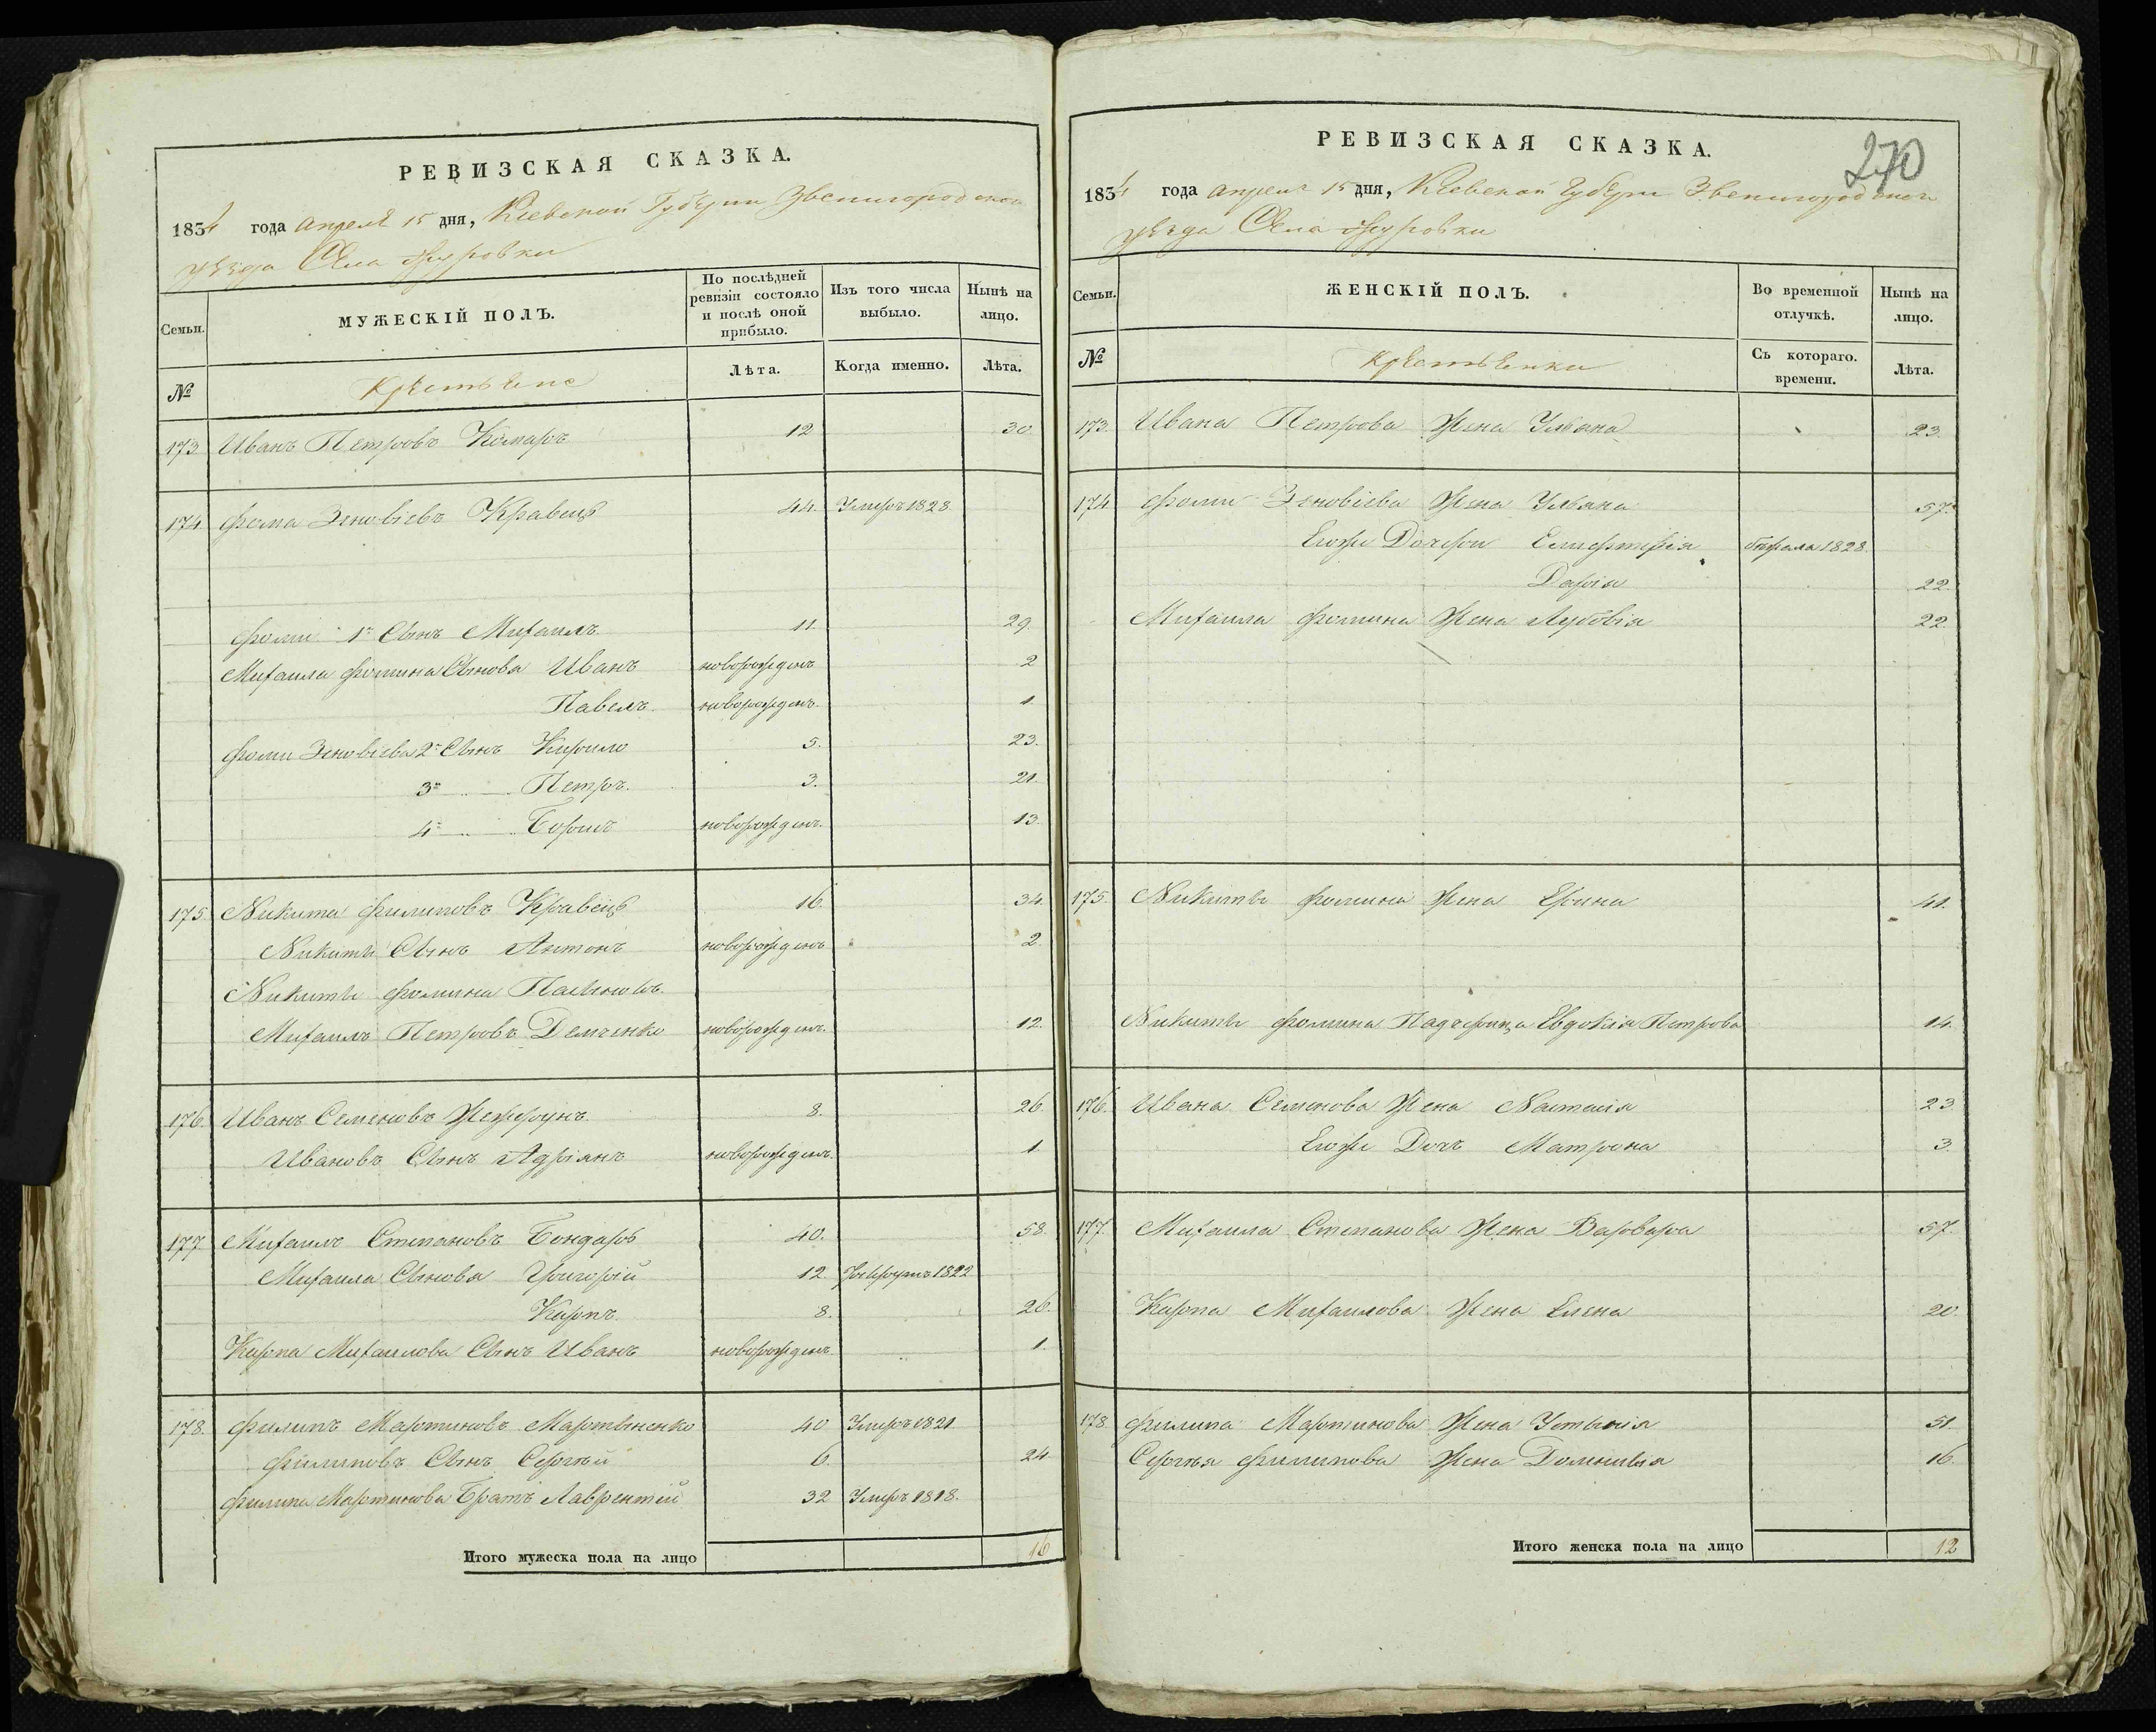 РЕВИЗСКАЯ СКАЗКА.
1834 года апреля 15 дня, Киевской Губернии Звенигородскаго
уезда Села
Семьи.
МУЖЕСКІЙ ПОЛЪ.
По послѣдней ревизіи состояло и послѣ оной прибыло.
Изъ того числа выбыло.
Нынѣ на лицо.
№
Крестьяне
Лѣта.
Когда именно.
Лѣта.
173 Иванъ Петровъ Комаръ 12 30
174 Фома Зеновіевъ Кравецъ 44. Умеръ 1828
Фоми 1й Сынъ Михаилъ 11. 29.
Михаила Фомина Сынова Иванъ новорожденъ 2
Павелъ новорожденъ. 1
Фоми Зеновіева 2й Сынъ Кирило 5. 23.
3й Петръ. 3. 21.
4й Борисъ новорожденъ. 13.
175 Никита Филиповъ Кравецъ 16. 34.
Никиты Сынъ Антонъ новорожденъ 2.
Никиты Фомина Пасынокъ
Михаилъ Петровъ Демченко новорожденъ. 12.
176. Иванъ Семеновъ 8. 26.
Ивановъ Сынъ Адріянъ новорожденъ. 1.
177 Михаилъ Степановъ Бондарь 40. 58
Михаила Сынова Григорій 12. 1822
Карпъ 8. 26.
Карпа Михаилова Сынъ Иванъ новорожденъ. 1.
178. Филипъ Мартиновъ Мартыненко 40 Умеръ 1821
Филиповъ Сынъ Сергѣй 6. 24
Филипа Мартинова Братъ Лаврентій 32 Умеръ 1818.
Итого мужеска пола на лицо 16
270
РЕВИЗСКАЯ СКАЗКА.
1834 года апреля 15 дня, Киевской Губерни Звенигородскаго
уезда Села
Семьи.
ЖЕНСКІЙ ПОЛЪ.
Во временной отлучкѣ.
Нынѣ на лицо.
№
Крестьянки
Съ котораго. времени.
Лѣта.
173. Ивана Петрова Жена Ульяна 23.
174 Фоми Зеновіева Жена Ульяна 57.
Егоже Дочери 1828.
Дарія 22.
Михаила Фомина Жена 22.
175. Никиты Фомина Жена Ерина 41.
Никиты Фомина Падчерица Евдокія Петрова 14.
176. Ивана Семенова Жена Настасія 23
Егоже Дочъ Матрона 3.
177. Михаила Степанова Жена Варвара 57.
Карпа Михаилова Жена Елена 20.
178. Филипа Мартинова Жена Устинія 51.
Сергѣя Филипова Жена Доминикія 16.
Итого женска пола на лицо 12